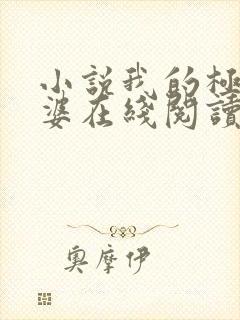 小説我的極
婆在綫閱讀
奧摩伊